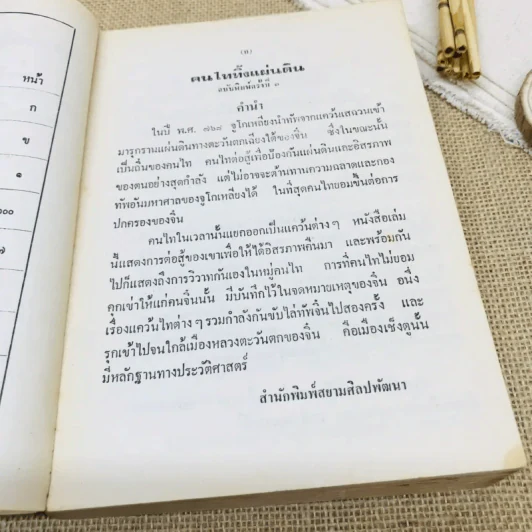 หน้า
ก
ข
๑
๐๐
๗
คนไททิ้งแผ่นดิน
ฉบับพิมพ์ครั้งที่
คำนำ
ในปี พ.ศ. ๗๖๘ จูโกเหลียงนำทัพจากแคว้นเสฉวนเข้า
มารุกรานแผ่นดินทางตะวันตกเฉียงใต้ของจีน ซึ่งในขณะนั้น
เป็นถิ่นของคนไท คนไทต่อสู้เพื่อป้องกันแผ่นดินและอิสรภาพ
ของตนอย่างสุดกำลัง แต่ไม่อาจจะต้านทานความฉลาดและกอง
ทัพอันมหาศาลของจูโกเหลียงได้ ในที่สุดคนไทยอมขึ้นต่อการ
ปกครองของจีน
คนไทในเวลานั้นแยกออกเป็นแคว้นต่างๆ หนังสือเล่ม
นี้แสดงการต่อสู้ของเขาเพื่อให้ได้อิสรภาพคืนมา และพร้อมกัน
ไปก็แสดงถึงการวิวาทกันเองในหมู่คนไท การที่คนไทไม่ยอม
คุกเข่าให้แก่คนจีนนั้น มีบันทึกไว้ในจดหมายเหตุของจีน อนึ่ง
เรื่องแคว้นไทต่างๆ รวมกำลังกันขับไล่ทัพจีนไปสองครั้ง และ
รุกเข้าไปจนใกล้เมืองหลวงตะวันตกของจีน คือเมืองเช็งตูนั้น
มีหลักฐานทางประวัติศาสตร์
สำนักพิมพ์สยามศิลปพัฒนา